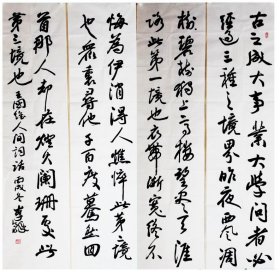 古之成大事業大學問者必
經過三種之境界昨夜西風凋
碧樹獨上高樓望盡天涯
路此第一境也衣帶漸寬終不
悔為伊消得人憔悴此第二境
也眾裏尋他千百度驀然回
首那人却在燈火闌珊處此
第三境也 王國維人間詞話 丙戌冬